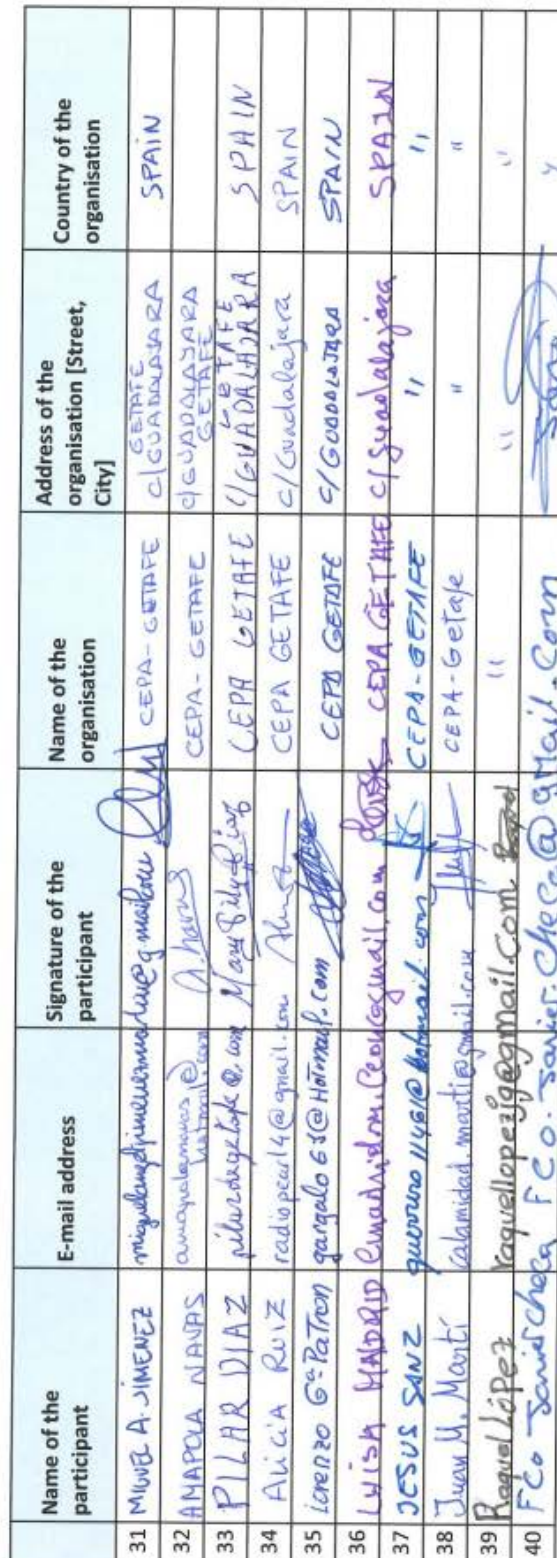 Name of the participant E-mail address Signature of the participant Name of the organisation Address of the organisation [Street, City] Country of the organisation
31 MIGUEL A. JIMENEZ CEPA-GETAFE GETAFE C/GUADALAJARA SPAIN
32 AMAPOLA NAVAS amapolanavas@hotmail.com A. Navas CEPA-GETAFE C/GUADALAJARA GETAFE
33 PILAR DIAZ CEPA GETAFE C/GUADALAJARA GETAFE SPAIN
34 ALICIA RUIZ radiopearl4@gmail.com CEPA GETAFE C/Guadalajara SPAIN
35 LORENZO Gª-PATRON gargalo65@Hotmail.com CEPA GETAFE C/GUADALAJARA SPAIN
36 LUISA MADRID CEPA GETAFE C/Guadalajara SPAIN
37 JESUS SANZ guerrero1146@hotmail.com CEPA-GETAFE " "
38 Juan M. Martí calamidad.marti@gmail.com CEPA-Getafe " "
39 Raquel López raquellopezjg@gmail.com " " "
40 FCO Javier Checa FCO.Javier.Checa@gMail.Com "